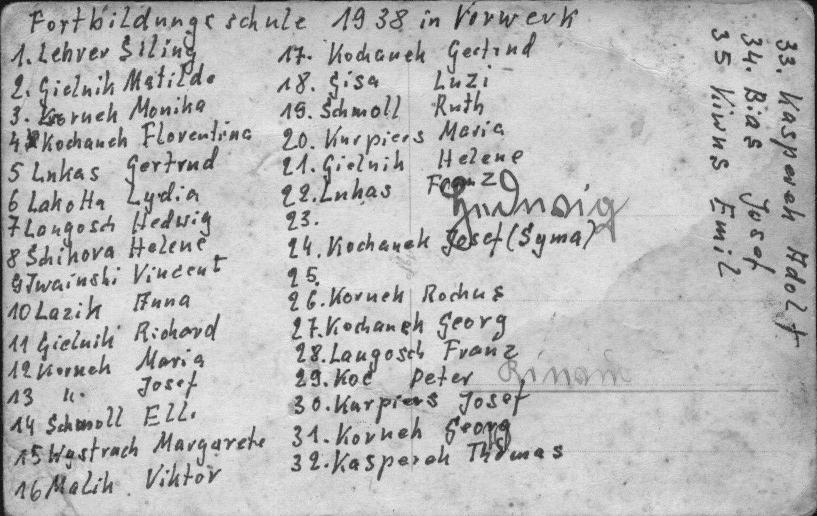 Fortbildungsschule 1938 in Vorwerk
1. Lehrer Siling
2. Gielnik Matilde
3. Korneh Monika
4. Kochaneh Florentina
5 Lukas Gertrud
6 Lakotta Lydia
7 Langosch Hedwig
8 Schikora Helene
9 Iwainski Vincent
10 Lazik Anna
11 Gielnik Richard
12 Korneh Maria
13 " Josef
14 Schmoll Elli
15 Wystrach Margarete
16 Malik Viktor
17. Kochaneh Gertrud
18. Gisa Luzi
19. Schmoll Ruth
20. Kurpiers Maria
21. Gielnik Helene
22. Lukas Franz
Hedwig
23.
24. Kochanek Josef (Syma)
25.
26. Korneh Rochus
27. Kochaneh Georg
28. Langosch Franz
29. Koc Peter
30. Kurpiers Josef
31. Korneh Georg
32. Kaspereh Thomas
33. Kaspereh Adolf
34. Bias Josef
35 Kiwus Emil